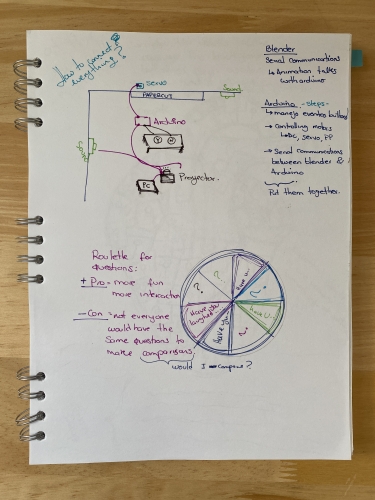 How to connect
everything?
Servo
PAPERCUT
Sound
Arduino
Y N
Projector.
PC
Blender
Serial communications
↳ Animation talks
with arduino
Arduino - steps -
↳ manejo eventos buttons
↳ Controlling motors
↳ DC, servo, PP
↳ Serial communications
between blender &
Arduino
Put them together.
Roulette for
questions:
+ Pro - more fun
more interaction
- Con - not everyone
would have the
same questions to
make comparisons
would I compare?
?
?
Have U...
?
Have U...
?
Have you..
Have you
laughed
?